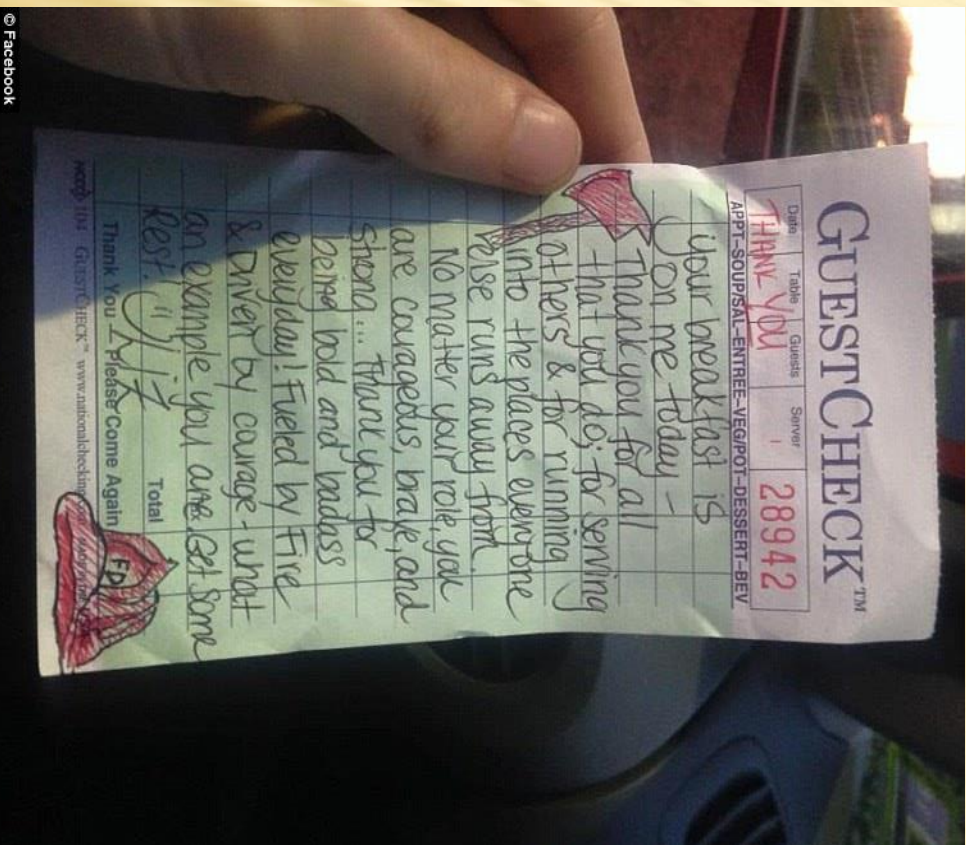 © Facebook
GUESTCHECK™
Date Table Guests Server
THANK YOU 28942
APPT-SOUP/SAL-ENTREE-VEG/POT-DESSERT-BEV
Your breakfast is
on me today -
Thank you for all
that you do; for serving
others & for running
into the places everyone
else runs away from.
No matter your role, you
are courageous, brave, and
strong... Thank you for
being bold and badass
everyday! Fueled by Fire
& Driven by courage - what
an example you are. Get some
Rest. Liz
Total
Thank You – Please Come Again
104 GUESTCHECK™
FD